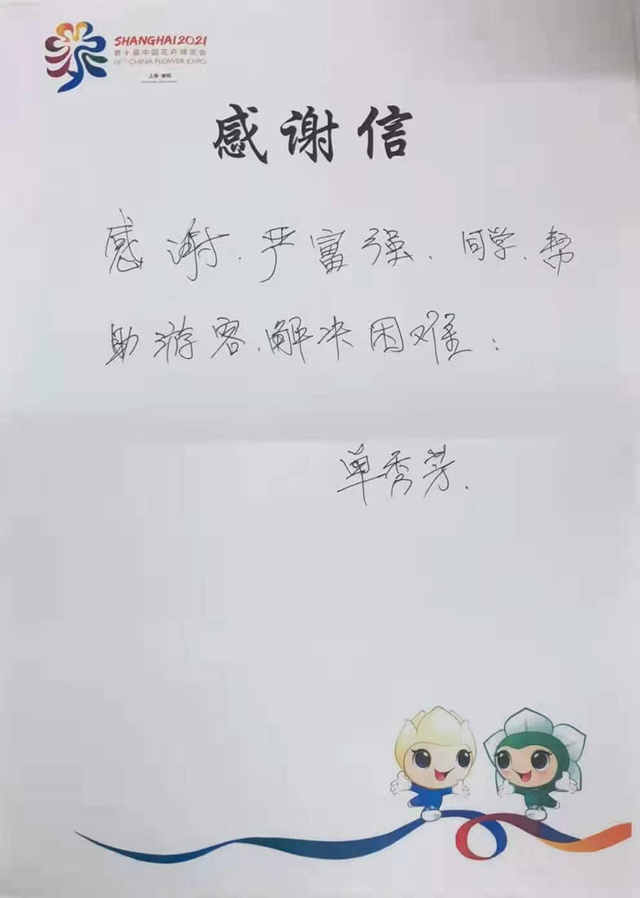 SHANGHAI 2021
第十届中国花卉博览会
10TH CHINA FLOWER EXPO
上海·崇明
感谢信
感谢、严富强、同学、帮
助游客、解决困难；
单秀芳.